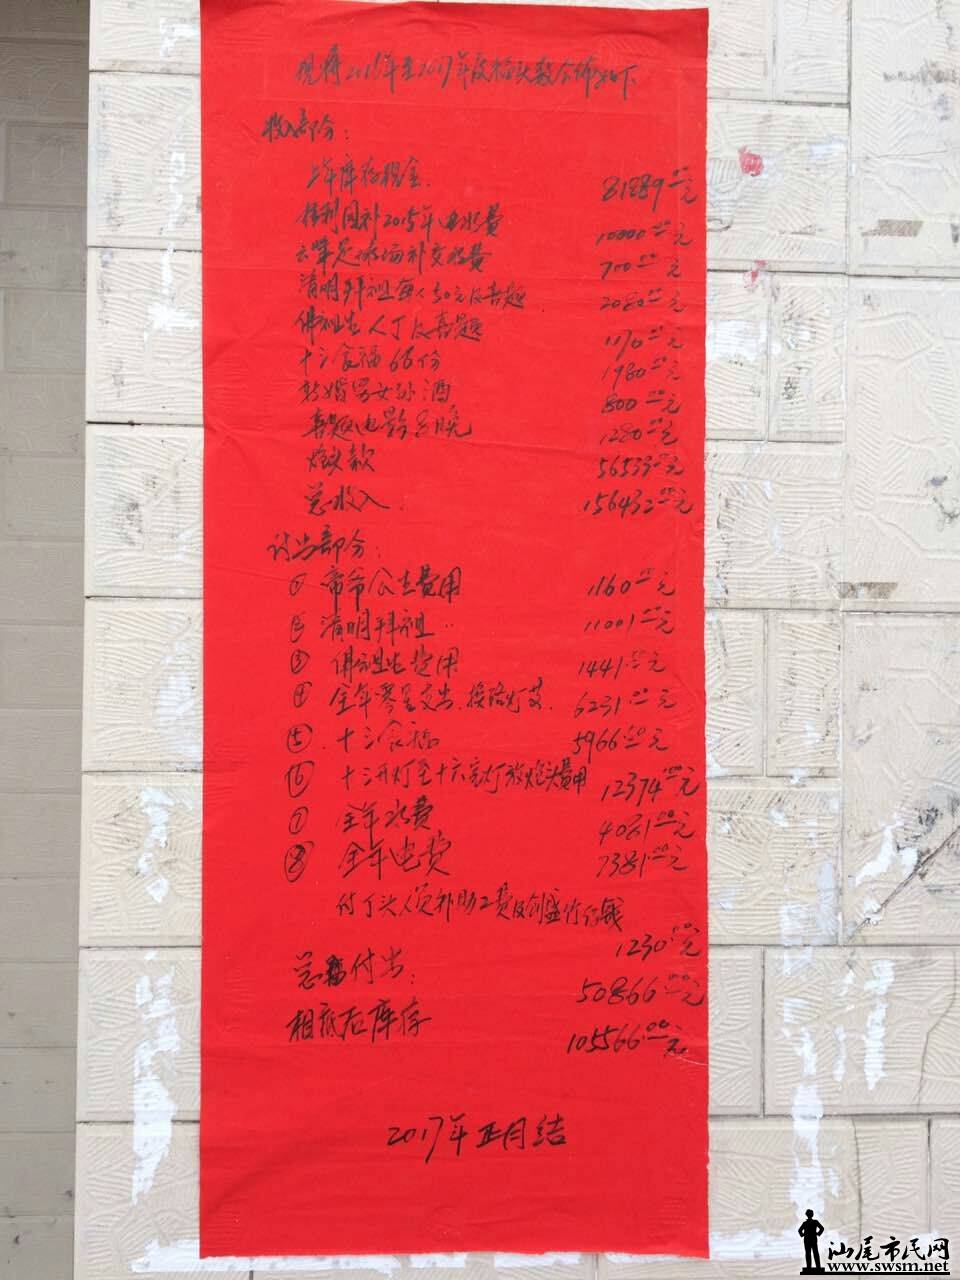 现将2016年至2017年度福头数公布如下
收入部分：
上年库存现金. 81889.00元
胜利围补2015年电水费 10000.00元
足球场补交水费 700.00元
清明拜祖每人50元及喜题 2080.00元
佛祖生人丁及喜题 1170.00元
十三食福66份 1980.00元
新婚男女 酒 800.00元
喜题电影8晚 1280.00元
炮头款 56533.00元
总收入. 156432.00元
付出部分：
① 帝爷公生费用 1160.00元
② 清明拜祖.. 11001.00元
③ 佛祖生费用 1441.00元
④ 全年零星支出.换路灯 6231.00元
⑤. 十三食福 5966.00元
⑥ 十三开灯至十六完灯放炮头费用 12374.00元
⑦ 全年水费 4081.00元
⑧ 全年电费 7381.00元
付丁头人员补助工费及
1230.00元
总付出： 50866.00元
相底后库存 105566.00元
2017年正月结
汕尾市民网
www.swsm.net